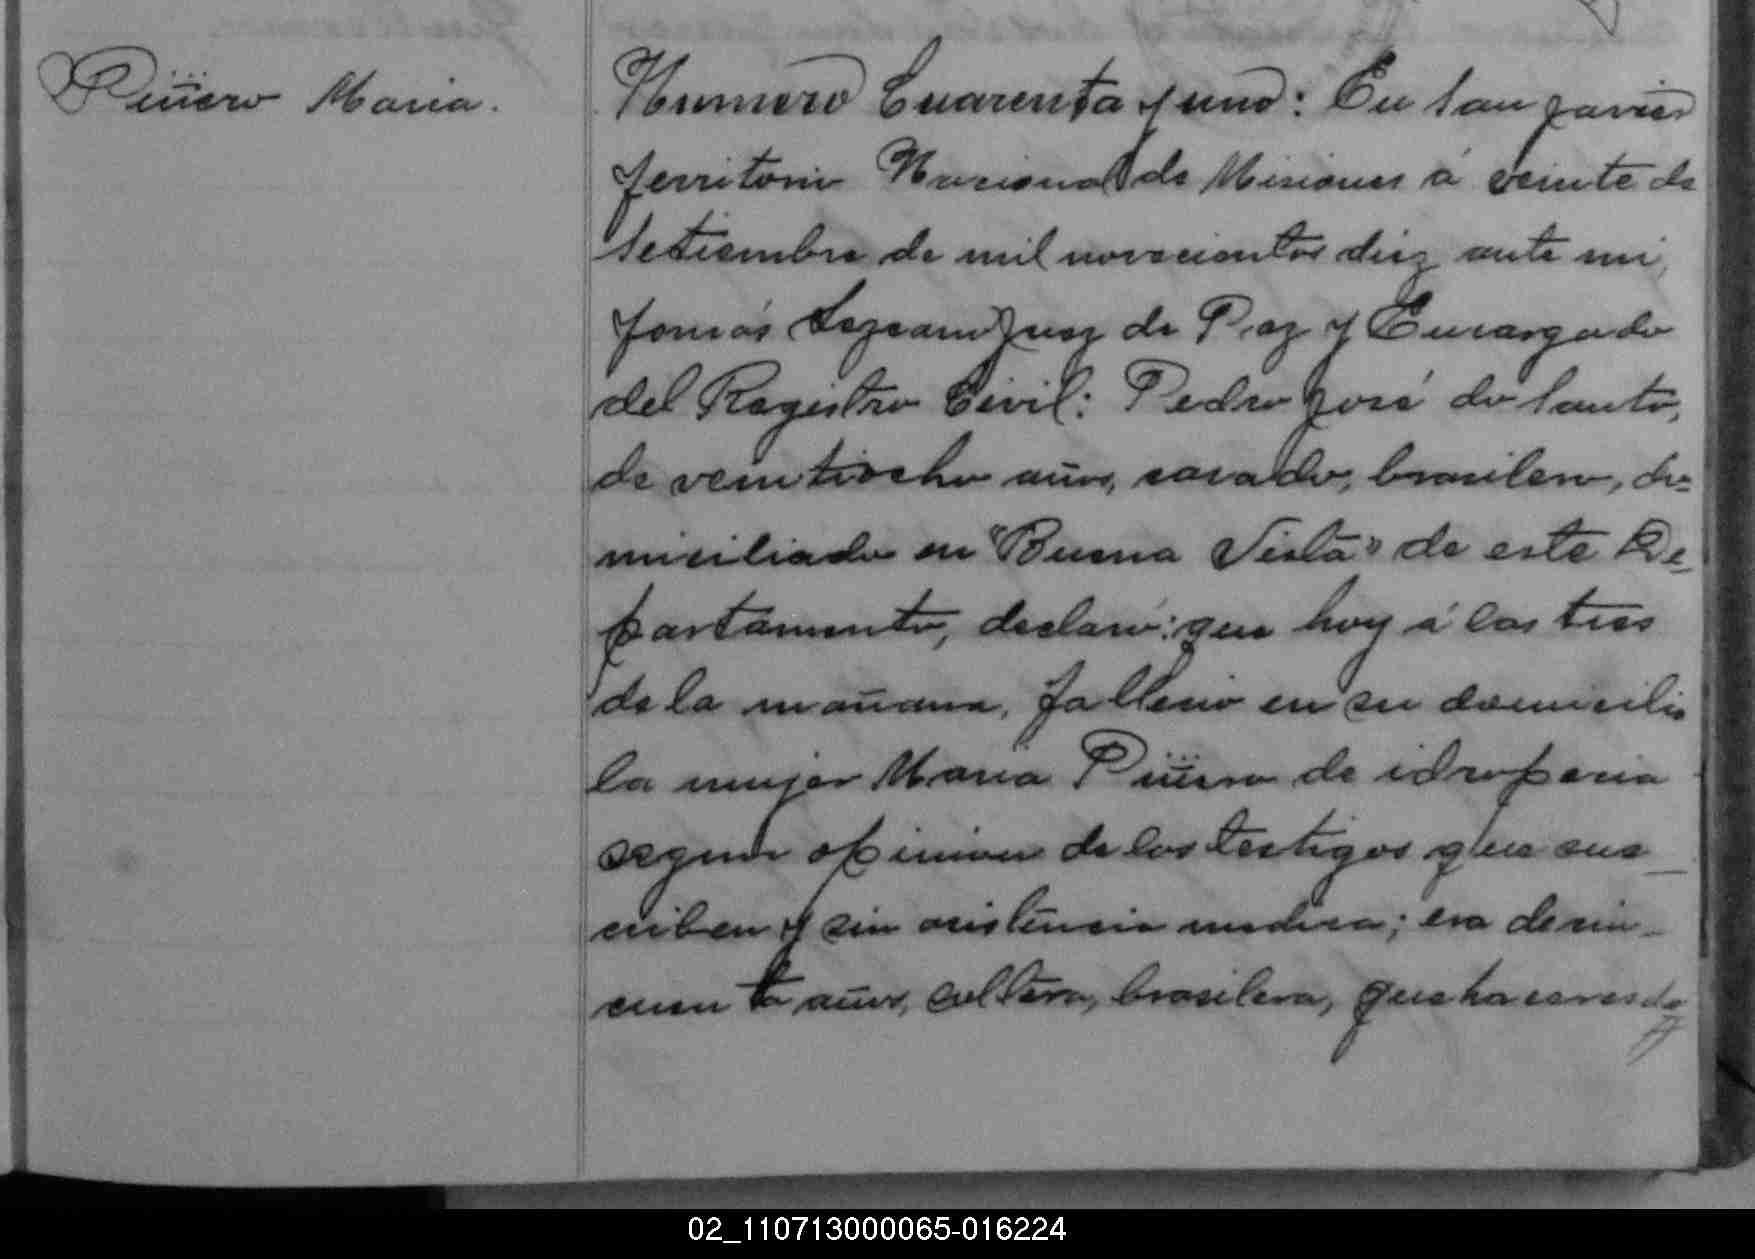 Piñero Maria.
Numero Cuarenta y uno: En San Javier
territorio Nacional de Misiones á veinte de
Setiembre de mil novecientos diez ante mi,
Tomás Lezcano Juez de Paz y Encargado
del Registro Civil: Pedro José do Santo,
de veintiocho años, casado, brasilero, do=
miciliado en "Buena Vista" de este De_
partamento, declaró: que hoy á las tres
de la mañana, fallecio en su domicilio
la mujer Maria Piñero de idropecia
segun opinion de los testigos que sus_
criben y sin asistencia medica; era de cin_
cuenta años, soltera, brasilera, quehaceres de
02_110713000065-016224